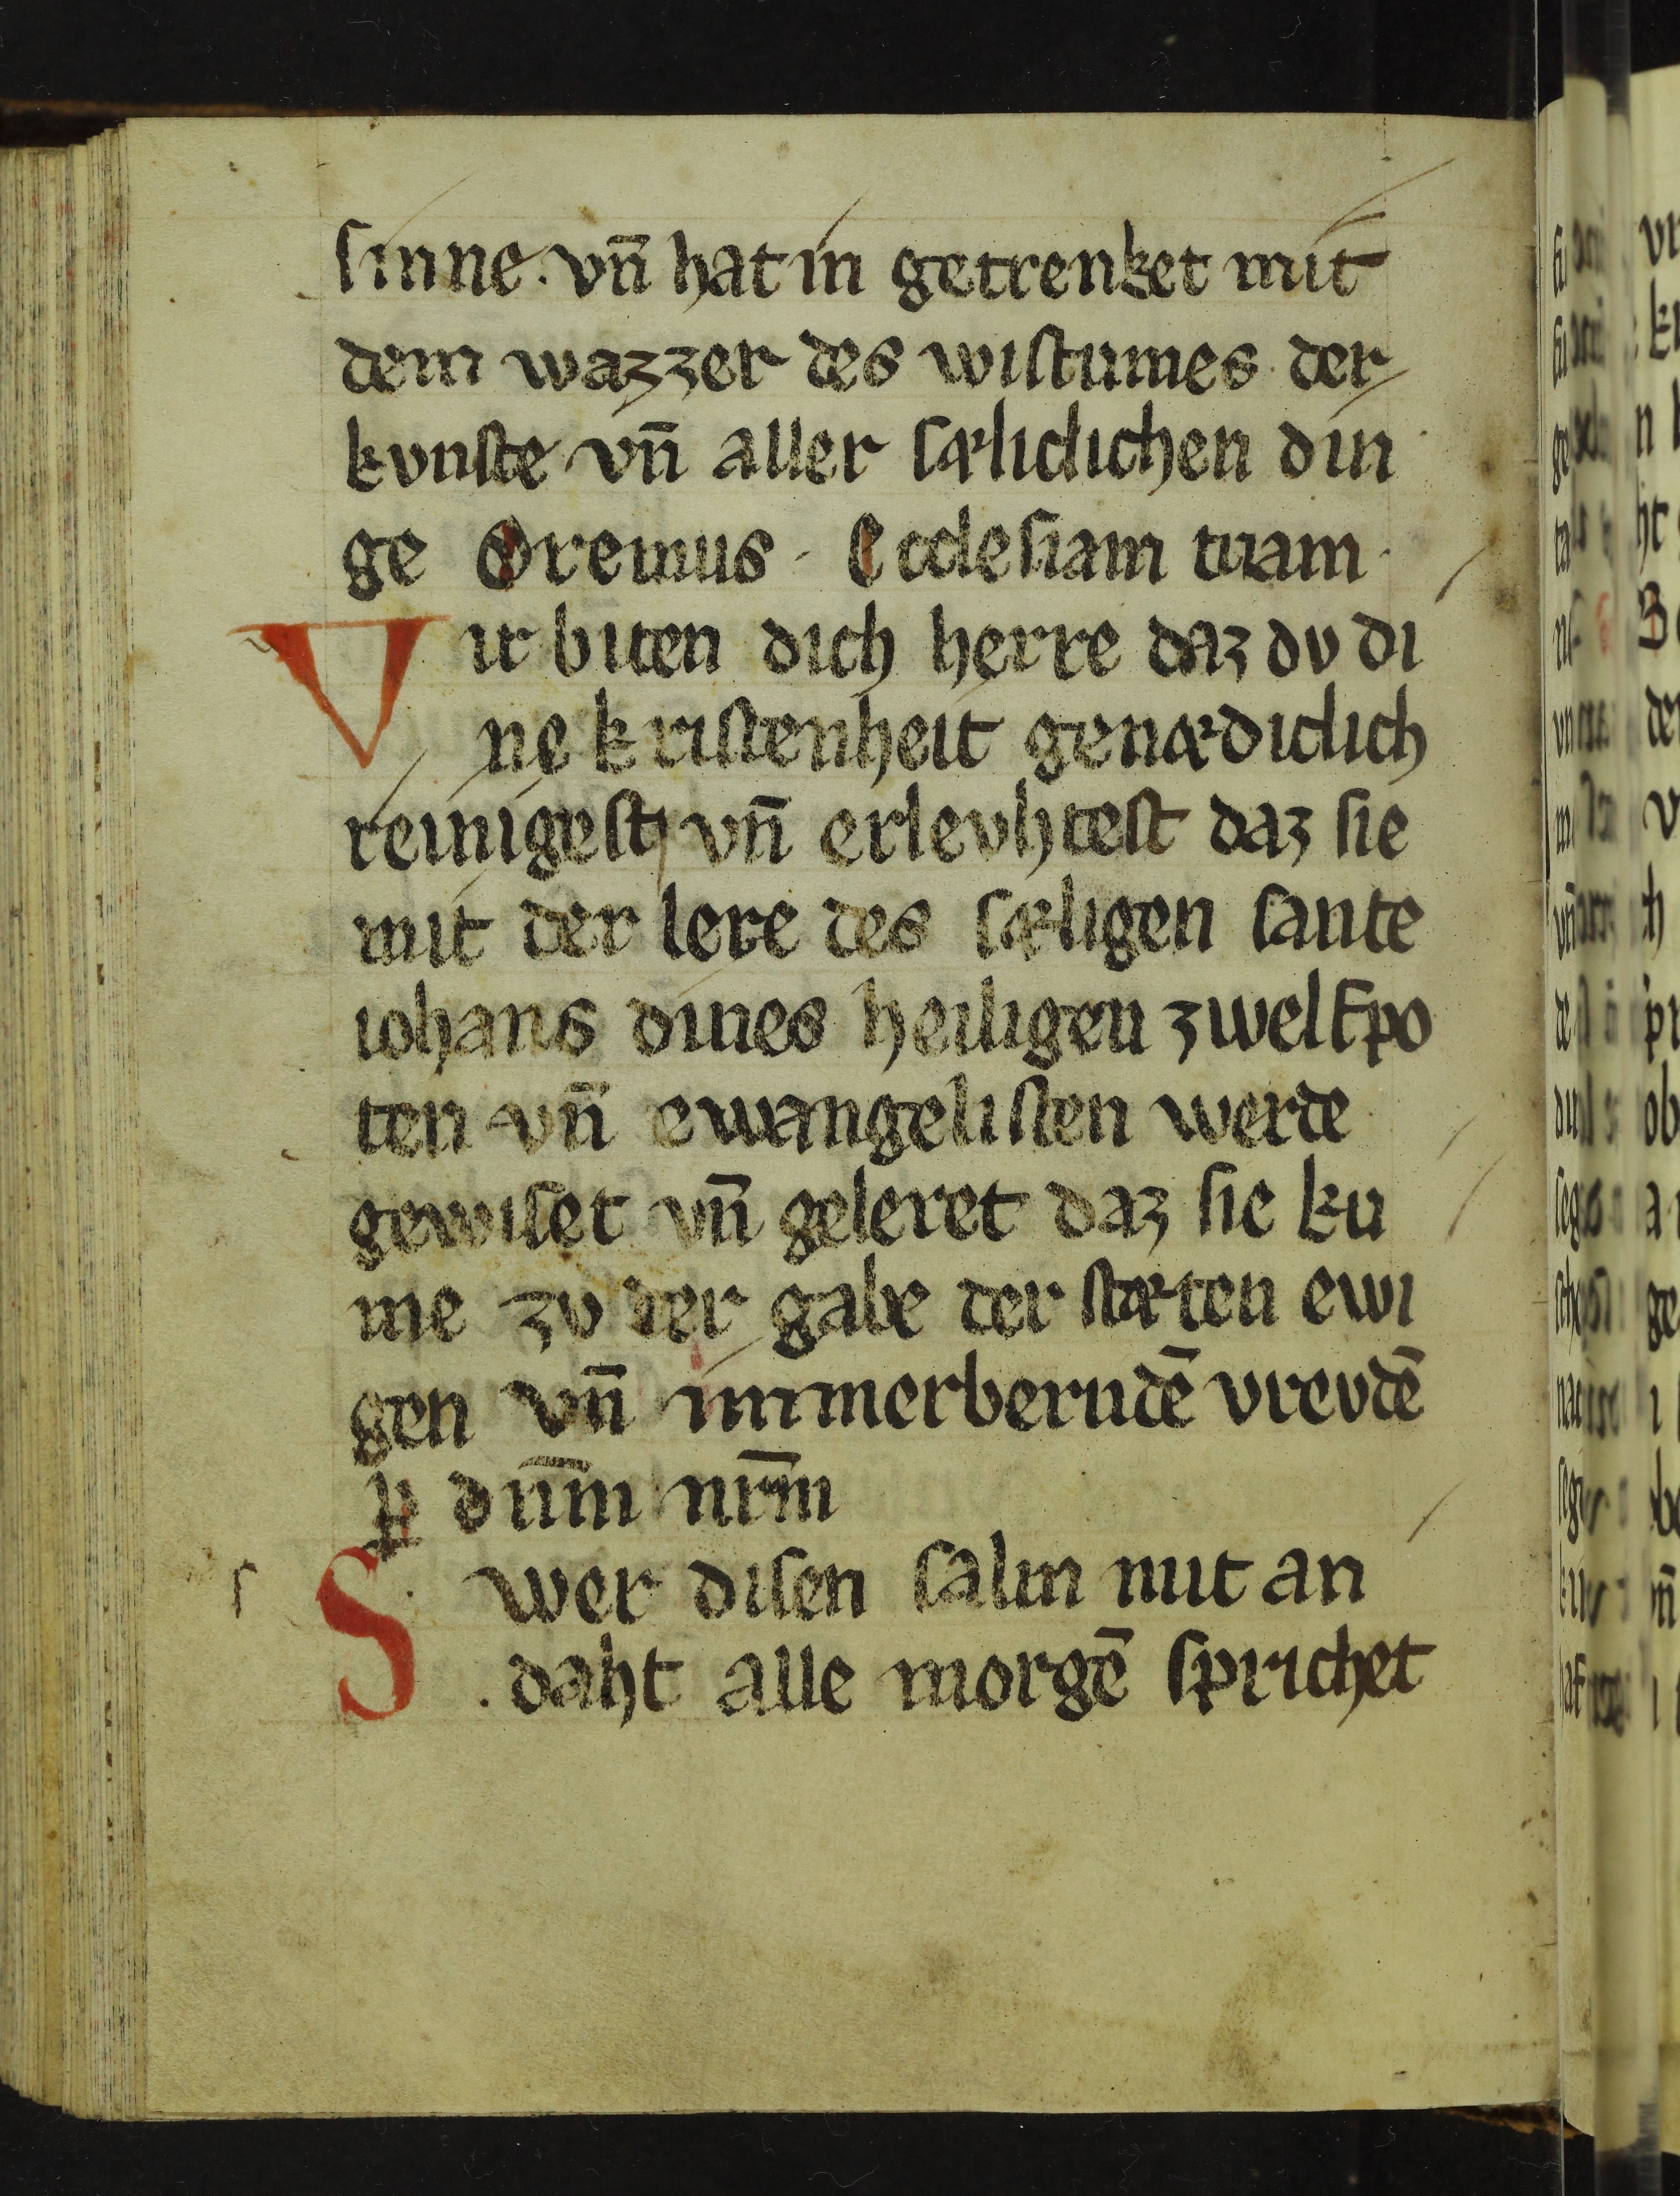 sinne. vn̄ hat in getrenket mit
dem wazzer des wistumes der
kvnste vn̄ aller sæliclichen din
ge Oremus. Ecclesiam tuam.
Vir biten dich herre daz dv di
ne kristenheit genædiclich
reinigest vn̄ erlevhtest daz sie
mit der lere des sæligen sante
iohans dines heiligen zwelfpo
ten vn̄ ewangelisten werde
gewiset vn̄ geleret daz sie ku
me zv der gabe der stæten ewi
gen vn̄ immerberndē vrevdē
ꝑ dn̄m nr̄m
Swer disen salm mit an
daht alle morgē sprichet